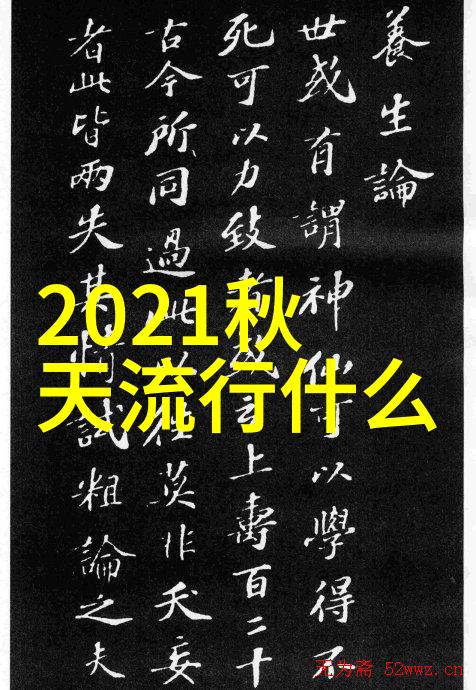 養生論
世或有謂神仙可以學得不
死可以力致者或云上壽百二十
古今所同過此以往莫非夭妄
者此皆兩失其情試粗論之夫
2021秋
天流行什么
无为斋 52wwz.cn